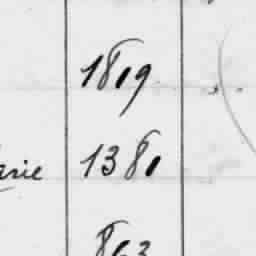 1819
arie 1381
863